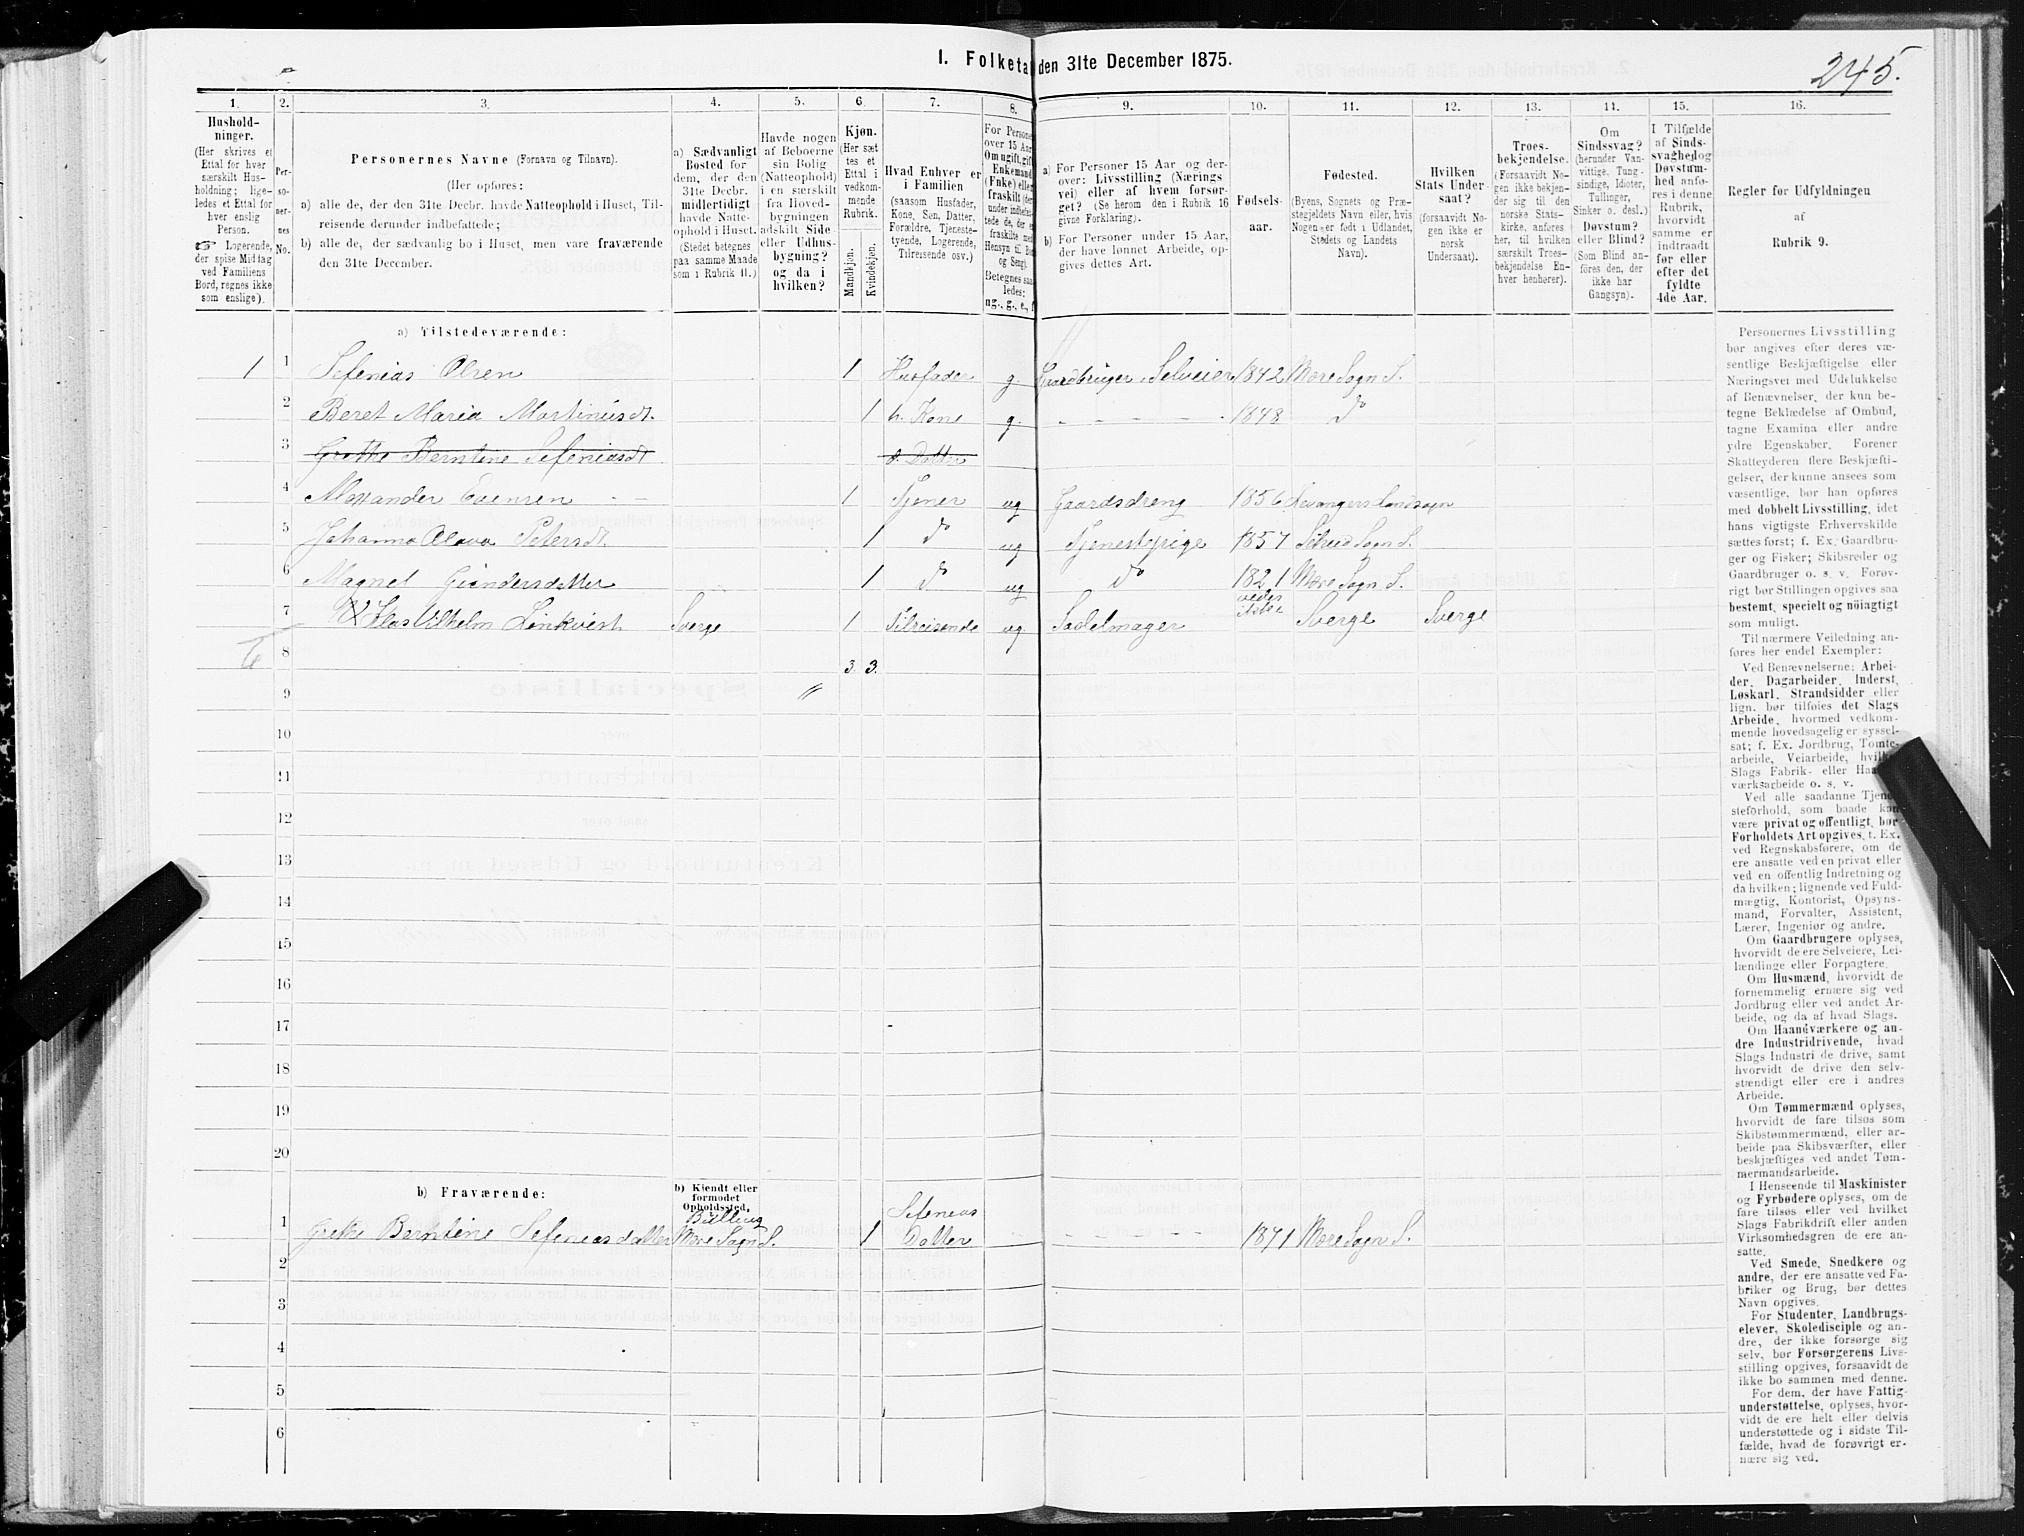 I. Folketa den 31te December 1875.
245.
1. 2. 3. 4. 5. 6. 7. 8. 9. 10. 11. 12. 13. 14. 15. 16.
Husholdninger.
(Her skrives et
Ettal for hver
særskilt Hus-
holdning; lige-
ledes et Ettal for
hver enslig
Person.
☞ Logerende,
der spise Middag
ved Familiens
Bord, regnes ikke
som enslige).
Per-
so-
ner-
nes
No.
Personernes Navne (Fornavn og Tilnavn).
(Her opføres:
a) alle de, der den 31te Decbr. havde Natteophold i Huset, Til-
reisende derunder indbefattede;
b) alle de, der sædvanlig bo i Huset, men vare fraværende
den 31te December.
a) Sædvanligt
Bosted for
dem, der den
31te Decbr.
midlertidigt
havde Natte-
ophold i Huset.
(Stedet betegnes
paa samme Maade
som i Rubrik 11.)
Havde nogen
af Beboerne
sin Bolig
(Natteophold)
i en særskilt
fra Hoved-
bygningen
adskilt Side-
eller Udhus-
bygning?
og da i
hvilken?
Kjøn.
(Her sæt-
tes et
Ettal i
vedkom-
mende
Rubrik.
Mandkjøn.
Kvindekjøn.
Hvad Enhver er
i Familien
(saasom Husfader,
Kone, Søn, Datter,
Forældre, Tjeneste-
tyende, Logerende,
Tilreisende osv.)
For Persone
over 15 Aar
Om ugift, gift
Enkemand
(Enke) elle
fraskilt (der
under indbefat-
tede de, der e
fraskilte med
Hensyn til Bo
og Seng).
Betegnes saa-
ledes:
ug., g., e., f
a) For Personer 15 Aar og der-
over: Livsstilling (Nærings
vei) eller af hvem forsør-
get? (Se herom den i Rubrik 16
givne Forklaring).
b) For Personer under 15 Aar,
der have lønnet Arbeide, op-
gives dettes Art.
Fødsels-
aar.
Fødested.
(Byens, Sognets og Præ-
stegjeldets Navn eller, hvis
Nogen er født i Udlandet,
Stedets og Landets
Navn).
Hvilken
Stats Under-
saat?
(forsaavidt No-
gen ikke er
norsk
Undersaat).
Troes-
bekjendelse.
(Forsaavidt No-
gen ikke bekjen-
der sig til den
norske Stats-
kirke, anføres
her, til hvilken
særskilt Troes-
bekjendelse En-
hver henhører).
Om
Sindssvag?
(herunder Van-
vittige, Tung-
sindige, Idioter,
Tullinger,
Sinker o. desl.)
Døvstum?
eller Blind?
(Som Blind an-
føres den, der
ikke har
Gangsyn).
I Tilfælde
af Sinds-
svaghed og
Døvstum-
hed anfø-
res i denne
Rubrik,
hvorvidt
samme er
indtraadt
før eller
efter det
fyldte
4de Aar.
Regler for Udfyldningen
af
Rubrik 9.
a) Tilstedeværende:
1 1 Sefenias Olsen 1 Husfader g. Gaardbruger, Selveier 1842 Mære Sogn S.
2 Beret Maria Martinusdt. 1 h. Kone g. - - - - 1848 do
3 Grethe Berntine Sefeniasdt d. Datter
4 Alexander Evensen 1 Tjener ug Gaardsdreng 1856 Levangers Landsogn
5 Johanna Olava Petersdt. 1 do ug Tjenestpige 1857 Sogn S.
6 Magnel Gundersdatter 1 do ug do 1821 Mære Sogn S.
7 Klas Vilhelm Linkvist Sverge 1 Tilreisende ug Sadelmager vedes ikke Sverge Sverge
6 8 3. 3.
9 "
10
11
12
13
14
15
16
17
18
19
20
b) Fraværende:
b) Kjendt eller
formodet
Opholdssted,
1 Grethe Berntine Sefeniasdatter Mære Sogn S. 1 Sefenias Datter - - - - 1871 Mære Sogn S.
2
3
4
5
6
Personernes Livsstilling
bør angives efter deres væ-
sentlige Beskjæftigelse eller
Næringsvei med Udelukkelse
af Benævnelser, der kun be-
tegne Beklædelse af Ombud,
tagne Examina eller andre
ydre Egenskaber. Forener
Skatteyderen flere Beskjæfti-
gelser, der kunne ansees som
væsentlige, bør han opføres
med dobbelt Livsstilling, idet
hans vigtigste Erhvervskilde
sættes først; f. Ex. Gaardbru-
ger og Fisker; Skibsreder og
Gaardbruger o. s. v. Forøv-
rigt bør Stillingen opgives saa
bestemt, specielt og nöiagtigt
som muligt.
Til nærmere Veiledning an-
føres her endel Exempler:
Ved Benævnelserne: Arbei-
der, Dagarbeider, Inderst,
Løskarl, Strandsidder eller
lign. bør tilføies det Slags
Arbeide, hvormed vedkom-
mende hovedsagelig er syssel-
sat; f. Ex. Jordbrug, Tomte-
arbeide, Veiarbeide, hvil
Slags Fabrik- eller Haa
værksarbeide o. s. v.
Ved alle saadanne Tjen
steforhold, som baade kan
være privat og offentligt, bør
Forholdets Art opgives, t. Ex.
ved Regnskabsførere, om de
ere ansatte ved en privat eller
ved en offentlig Indretning og
da hvilken; lignende ved Fuld-
mægtig, Kontorist, Opsyns-
mand, Forvalter, Assistent,
Lærer, Ingeniør og andre.
Om Gaardbrugere oplyses,
hvorvidt de ere Selveiere, Lei-
lændinge eller Forpagtere.
Om Husmænd, hvorvidt de
fornemmelig ernære sig ved
Jordbrug eller ved andet Ar-
beide, og da af hvad Slags.
Om Haandværkere og an-
dre Industridrivende, hvad
Slags Industri de drive, samt
hvorvidt de drive den selv-
stændigt eller ere i andres
Arbeide.
Om Tømmermænd oplyses,
hvorvidt de fare tilsøs som
Skibstømmermænd, eller ar-
beide paa Skibsværfter, eller
beskjæftiges ved andet Tøm-
mermandsarbeide.
I Henseende til Maskinister
og Fyrbødere oplyses, om de
fare tilsøs eller ved hvilket
Slags Fabrikdrift eller anden
Virksomhedsgren de ere an-
satte.
Ved Smede, Snedkere og
andre, der ere ansatte ved Fa-
briker og Brug, bør dettes
Navn opgives.
For Studenter, Landbrugs-
elever, Skoledisciple og an-
dre, der ikke forsørge sig
selv, bør Forsørgerens Livs-
stilling opgives, forsaavidt de
ikke bo sammen med denne.
For dem, der have Fattig-
understøttelse, oplyses, hvor-
vidt de ere helt eller delvis
understøttede og i sidste Til-
fælde, hvad de forøvrigt er-
nære sig ved.